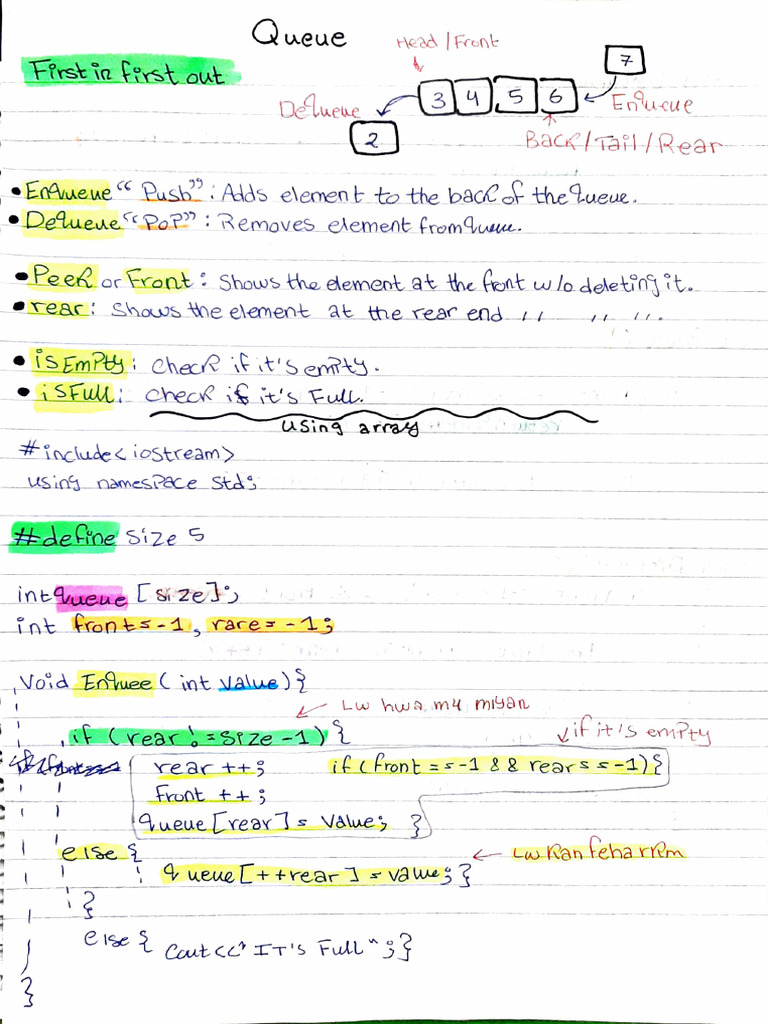 Queue
Head/Front
First in first out
7
3 4 5 6
DeQueue
EnQueue
2
Back/Tail/Rear
• EnQueue "Push": Adds element to the back of the queue.
• DeQueue "PoP": Removes element from queue.
• Peek or Front: Shows the element at the front w/o deleting it.
• rear: Shows the element at the rear end ,, ,, ,,.
• isEmpty: Check if it's empty.
• isFull: Check if it's Full.
using array
#include<iostream>
using namespace std;
#define size 5
int queue [size];
int front=-1, rare=-1;
Void Enquee (int value){
Lw hwa m4 miyan
if (rear!=size-1){
if it's empty
rear ++; if(front==-1 && rear==-1){
front ++;
queue [rear]= value; }
else{
Lw kan feh arkkm
queue[++rear]=value;}
}
else{ Cout<<"IT's Full";}
}